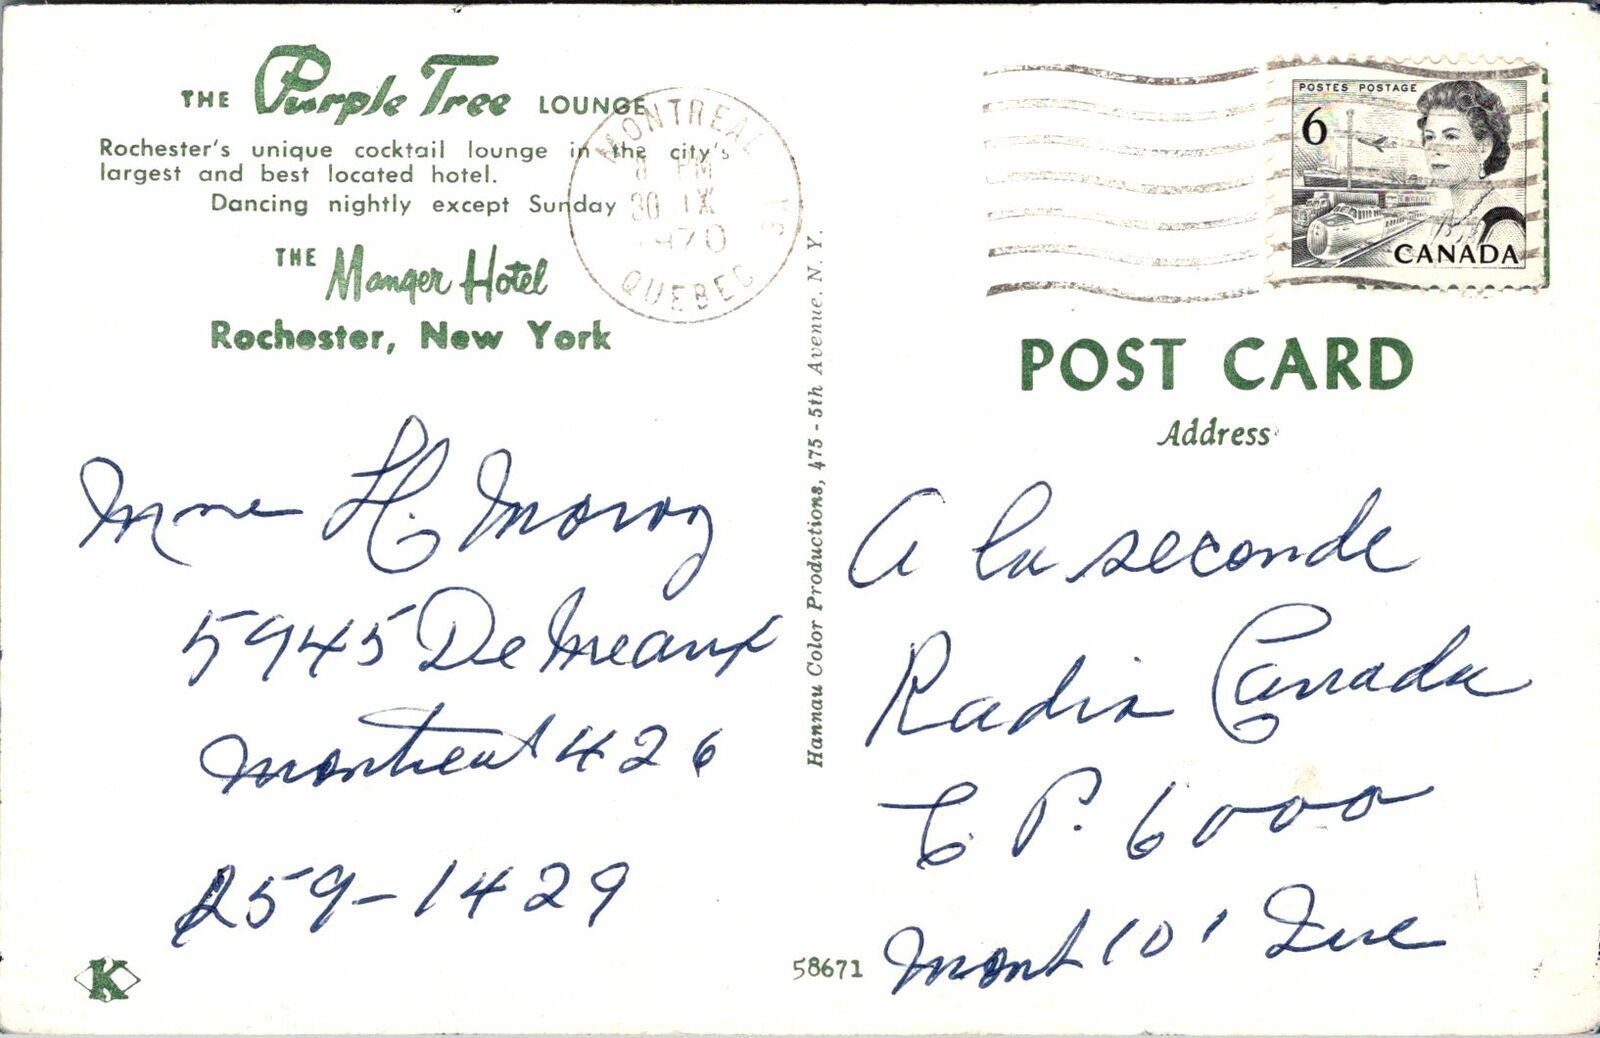 THE Purple Tree LOUNGE
Rochester's unique cocktail lounge in the city's
largest and best located hotel.
Dancing nightly except Sunday
THE Manger Hotel
Rochester, New York
MONTREAL
PM
30 IX
1970
QUEBEC
POSTES POSTAGE
6
CANADA
POST CARD
Address
Mme H.
5945 De Meaux
Montreal 426
259-1429
K
Hannau Color Productions, 475 - 5th Avenue, N. Y.
58671
A la seconde
Radio Canada
C. P. 6000
Mont 101 Que